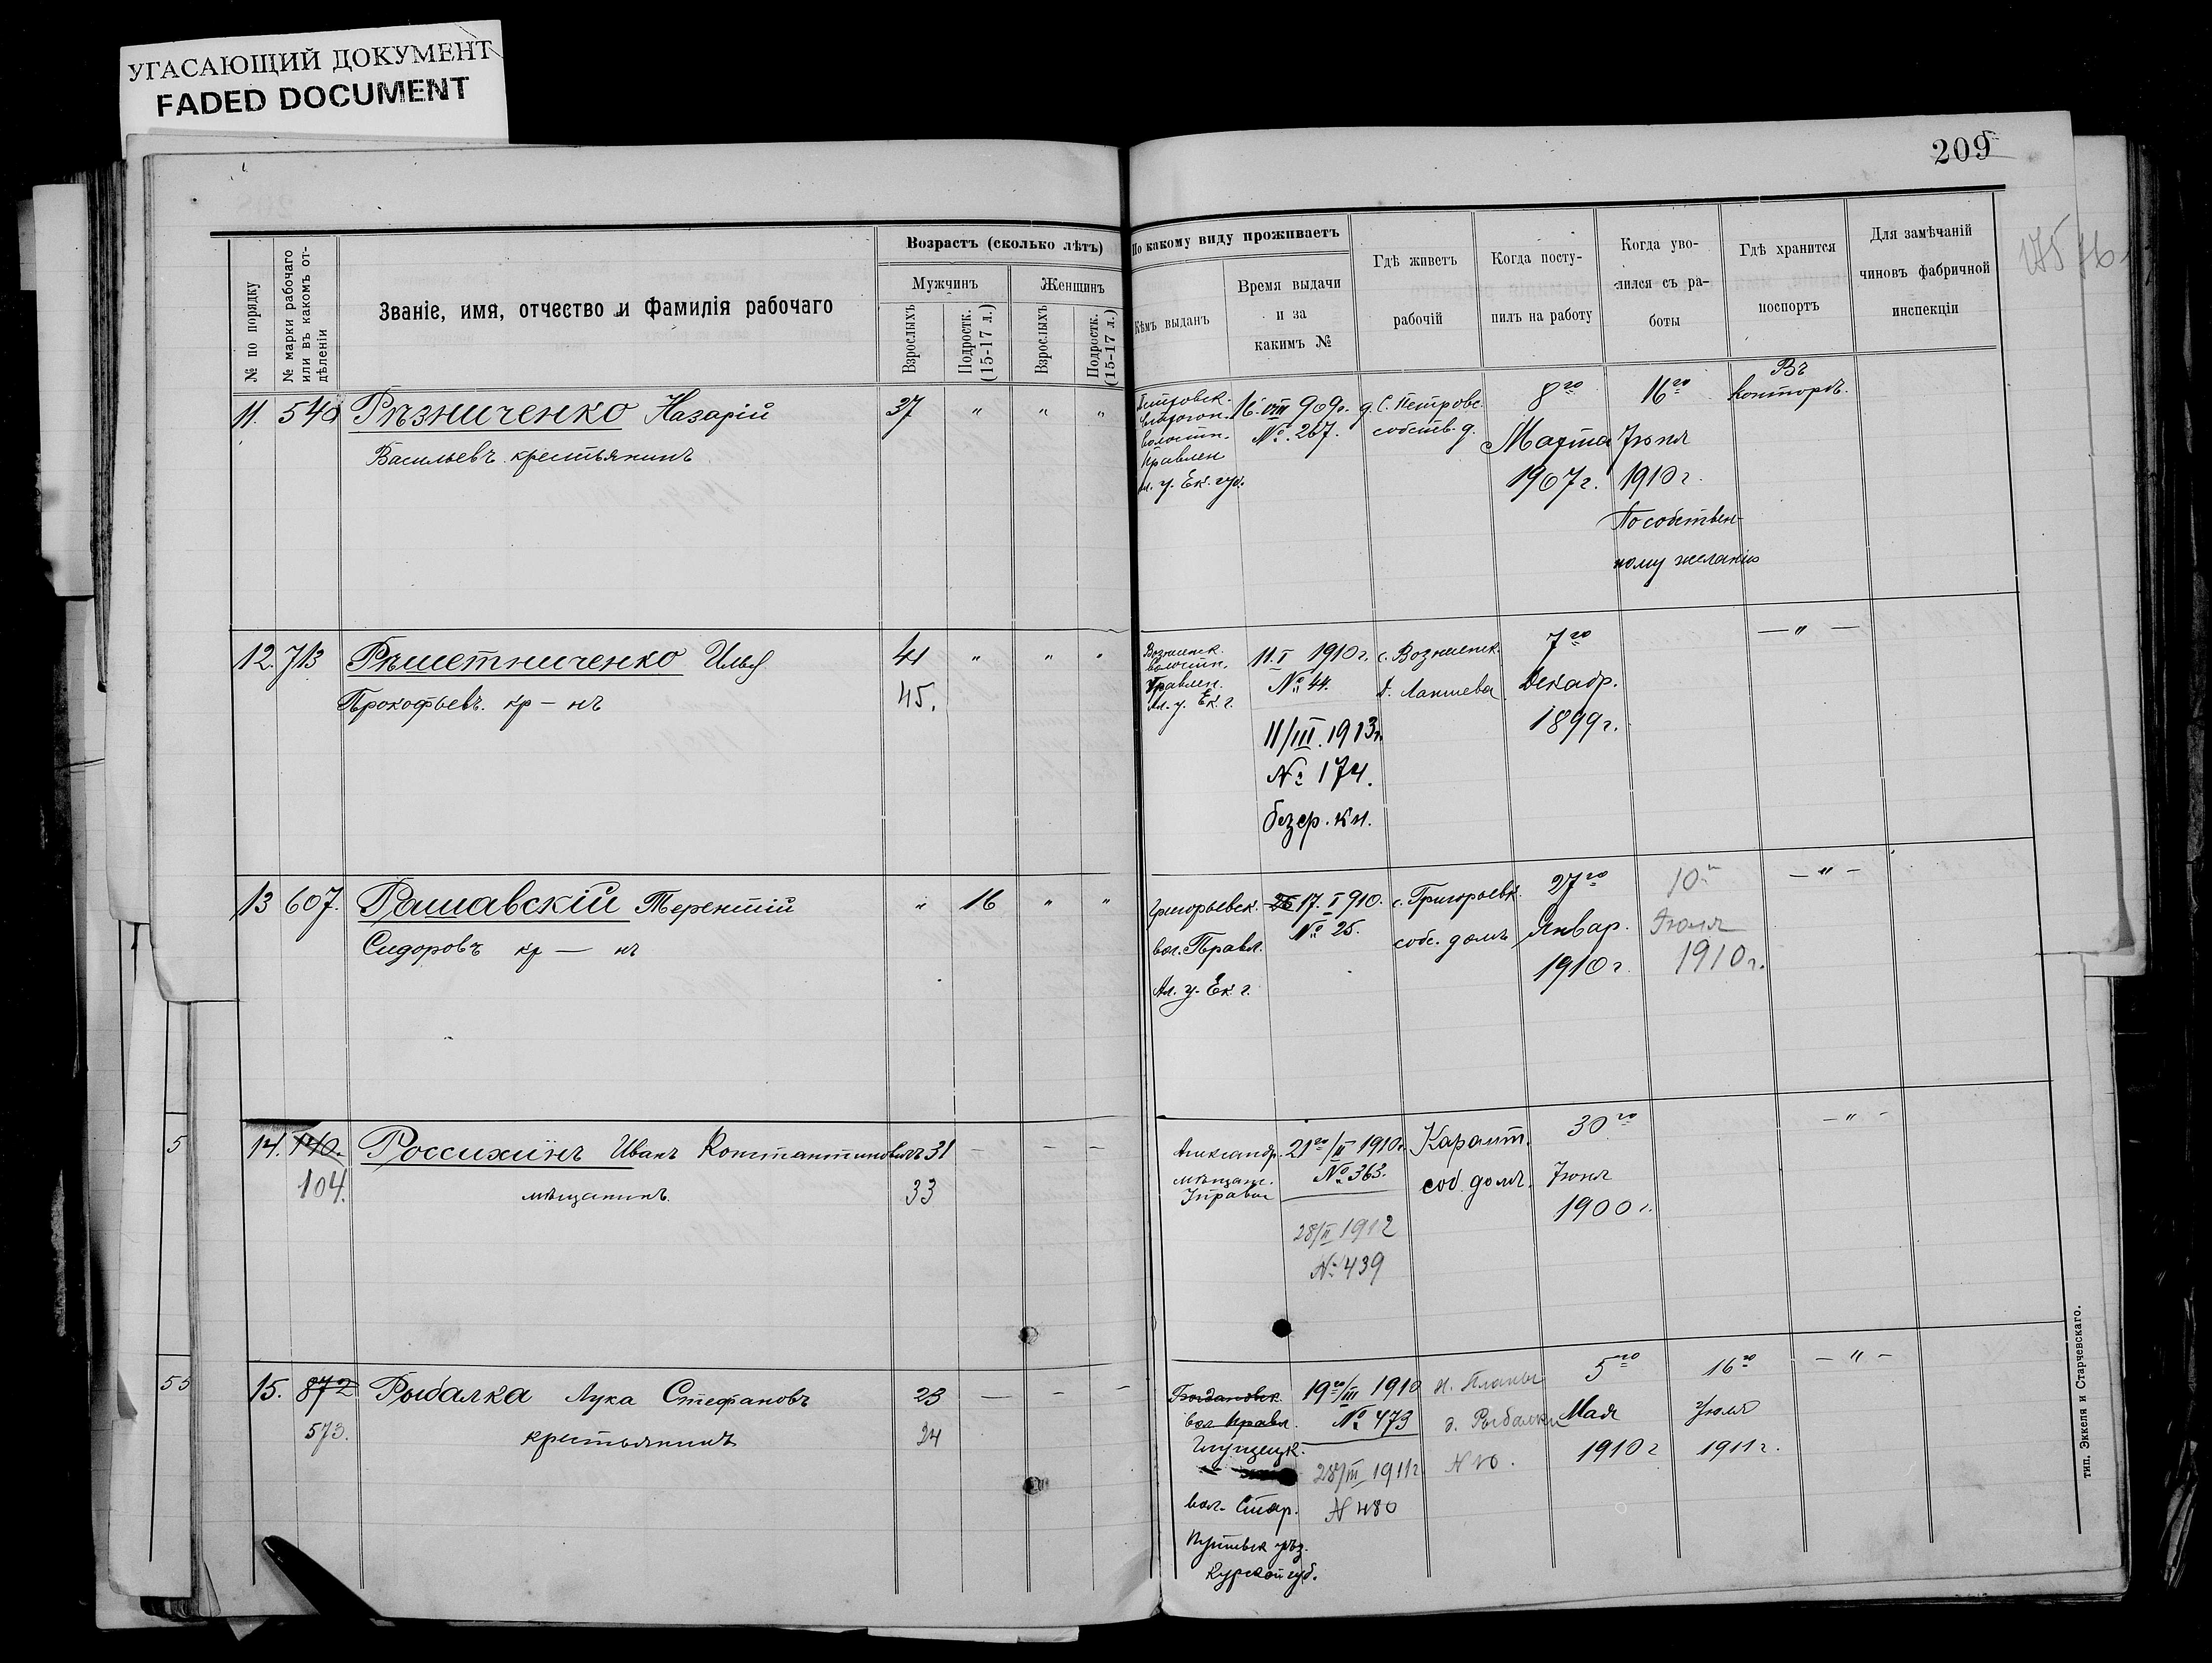 УГАСАЮЩИЙ ДОКУМЕНТ
FADED DOCUMENT
209
№ по порядку
№ марки рабочаго
или въ какомъ от-
дѣленіи
Званіе, имя, отчество и фамилія рабочаго
Возрастъ (сколько лѣтъ)
Мужчинъ
Женщинъ
Взрослыхъ
Подростк.
(15-17 л.)
Взрослыхъ
Подростк.
(15-17 л.)
По какому виду проживаетъ
Кѣмъ выданъ
Время выдачи
и за
какимъ №
Гдѣ живетъ
рабочій
Когда посту-
пилъ на работу
Когда уво-
лился съ ра-
боты
Гдѣ хранится
поспортъ
Для замѣчаній
чиновъ фабричной
инспекціи
11. 540 Рѣзниченко Назарій
Васильевъ крестьянинъ
37 " " "
Петровск.
волостн.
Правлен
Ал. у. Ек. губ.
16. VIII 909г.
№ 267.
С. Петровс.
собств. д.
8го
Марта
1907 г.
16го
Іюня
1910 г.
По собствен-
ному желанію
Въ
Конторѣ.
12. 713 Рѣшетниченко Илья
Прокофьевъ. кр-нъ
41 " " "
45.
Вознесенск.
волостн.
Правлен.
Ал. у. Ек. г.
11. I 1910 г.
№ 44.
11/III. 1913 г.
№ 174.
безср. кн.
с. Вознесенк.
д. Лапшева
7го
Декабр.
1899 г.
— " —
13 607. Рашавскій Терентій
Сидоровъ кр — нъ
" 16 " "
Григорьевск.
вол. Правл.
Ал. у. Ек. г.
17. I 910.
№ 25.
с. Григорьевк.
собс. домъ
27го
Январ.
1910 г.
10го
Іюня
1910 г.
— " —
14. 140. Россихинъ Иванъ Константиновичъ 31 — — —
104.
мѣщанинъ.
33
Александр.
мѣщанс.
Управы
21го/II 1910 г.
№ 363.
28/II 1912
№ 439
Карант.
соб. домъ.
30го
Іюня
1900 г.
— " —
15. 872 Рыбалка Лука Стефановъ 23 — — —
573.
крестьянинъ
24
Богдановск.
вол. Правл.
Глушецк.
вол. Стар.
Путивьск уѣз.
Курской губ.
19го/III 1910
№ 473
28/III 1911 г
№ 480
н. Планы
д. Рыбалки
№ 10.
5го
Мая
1910 г
16го
Іюля
1911 г.
— " —
5
55
тип. Эккеля и Старчевскаго.